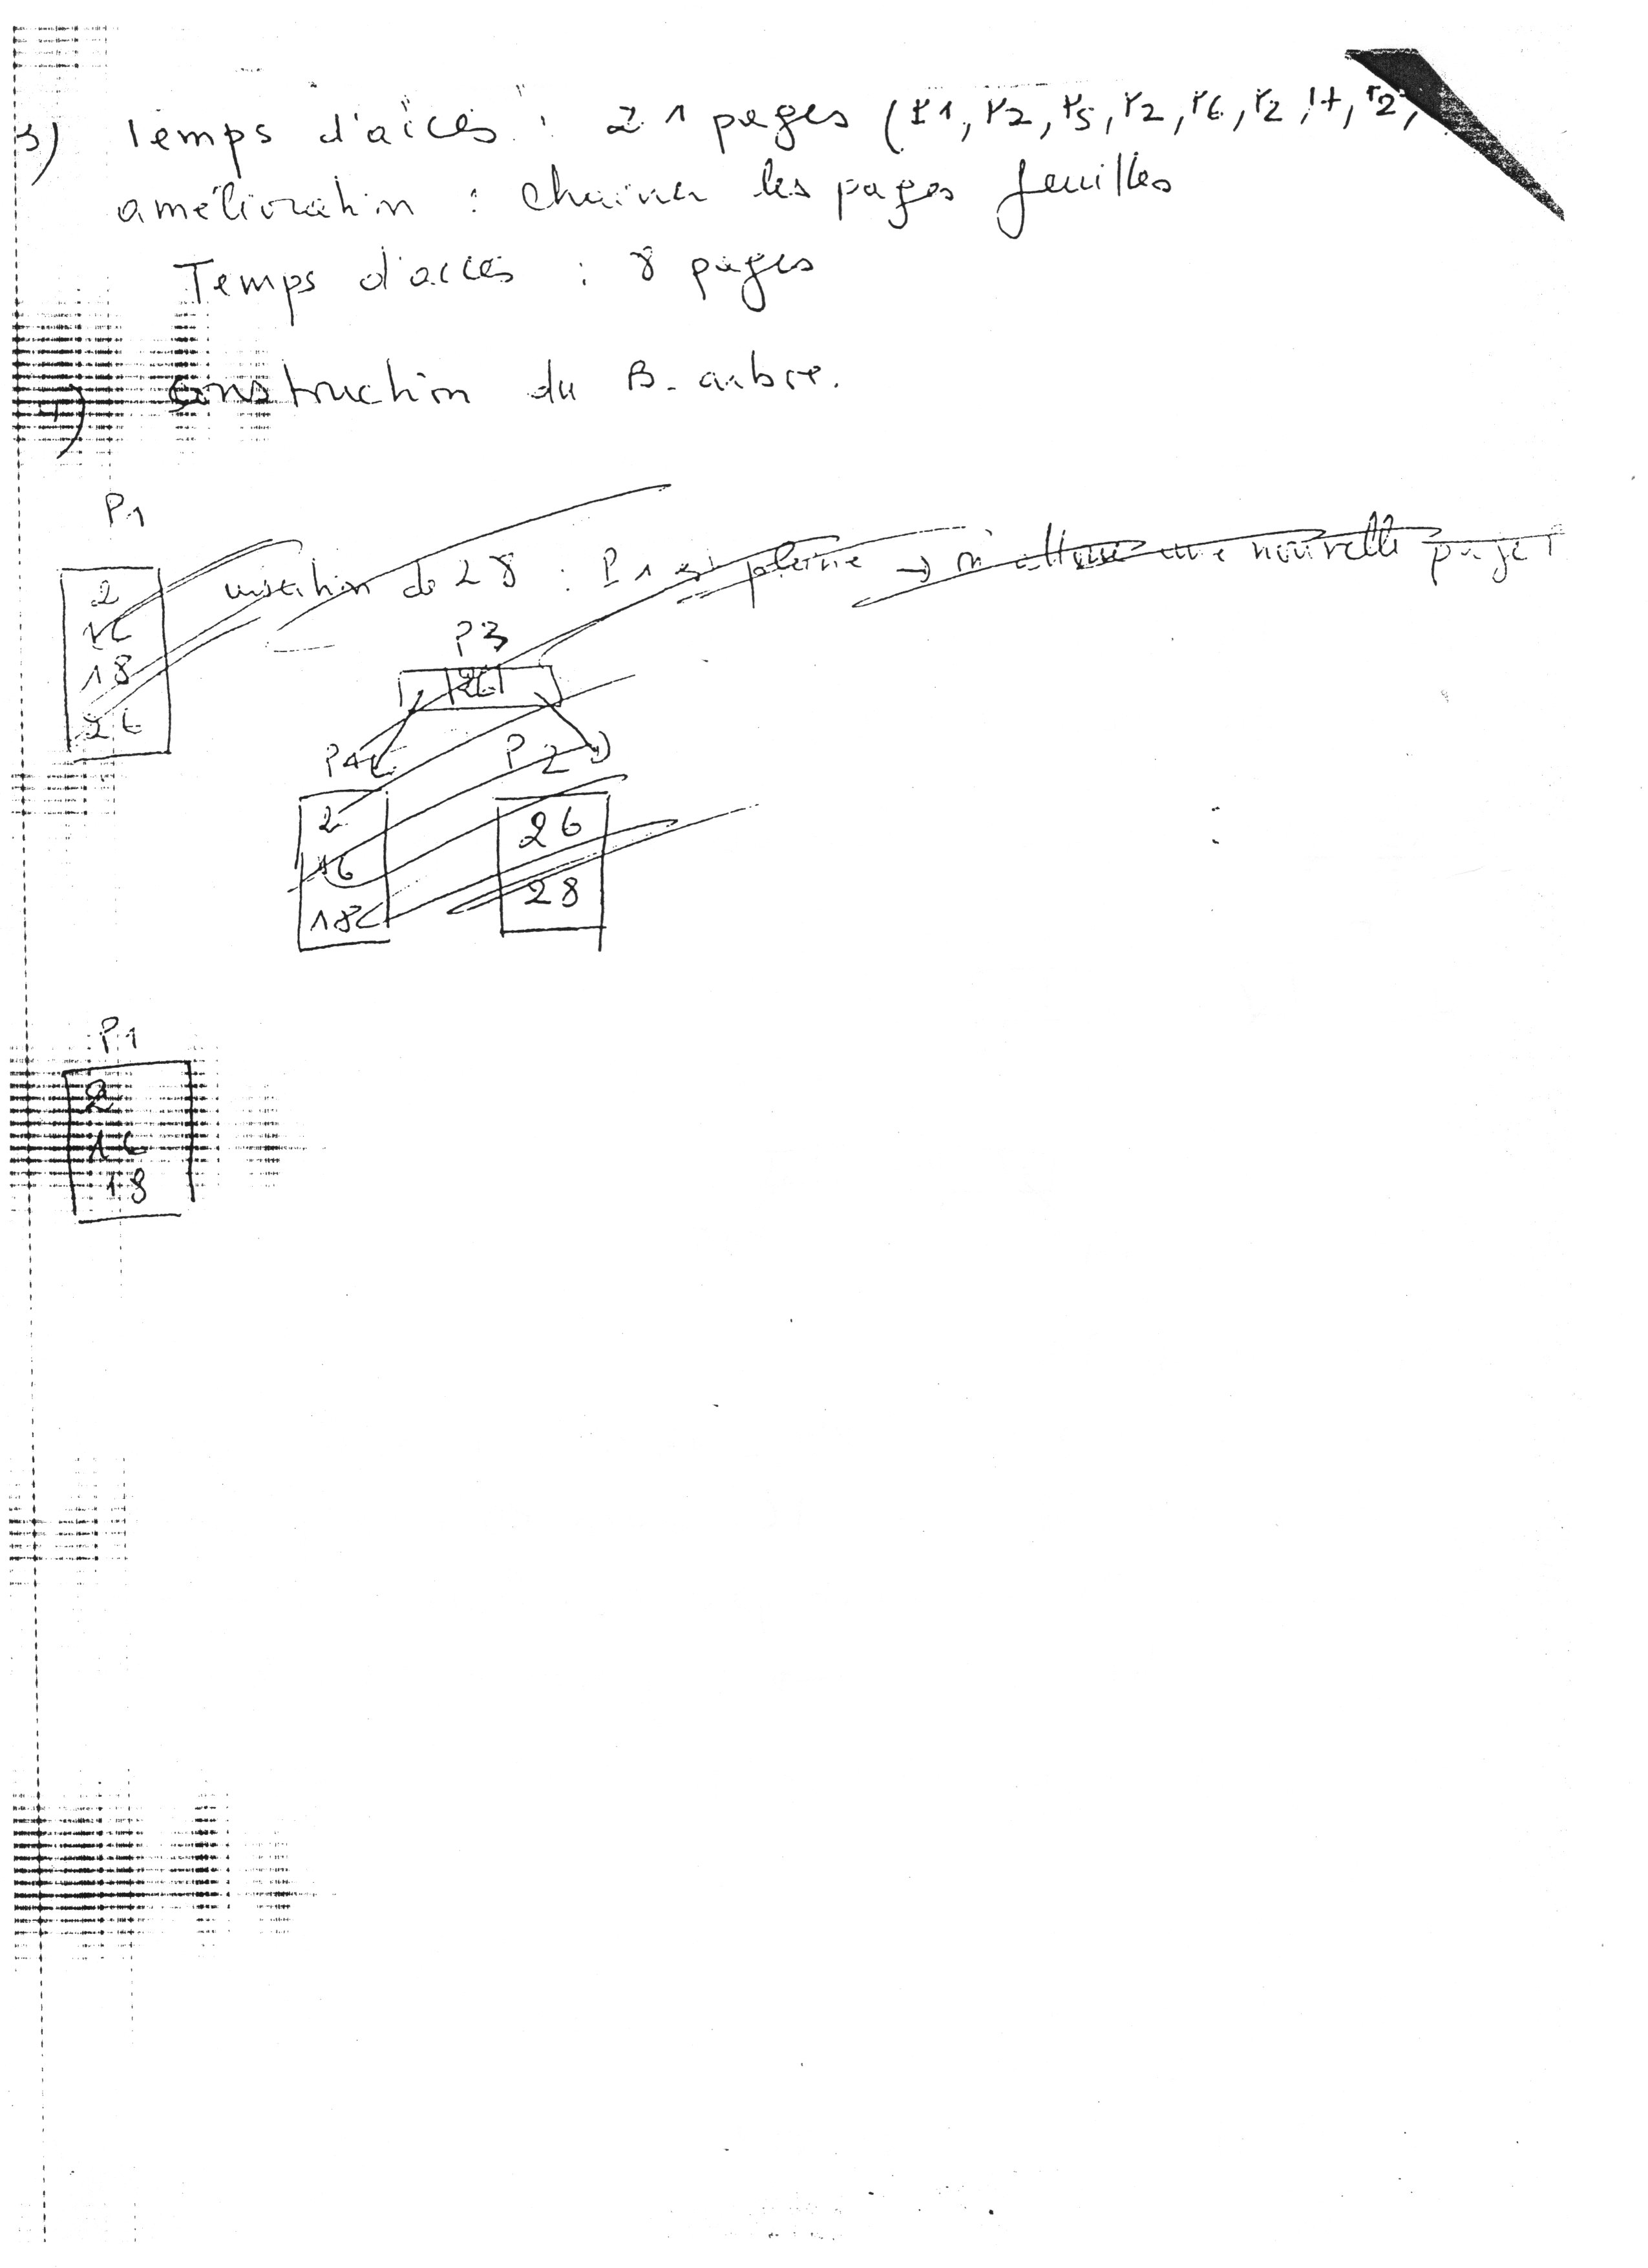 3) Temps d'accès : 21 pages (P1, P2, P5, P2, P6, P2, P7, P2,
amélioration : chainer les pages feuilles
Temps d'accès : 8 pages
construction du B-arbre.
P1
2
16
18
26
insertion de 28 : P1 est pleine → on alloue une nouvelle page
P3
P1 P2
2 26
16 28
18
P1
2
16
18